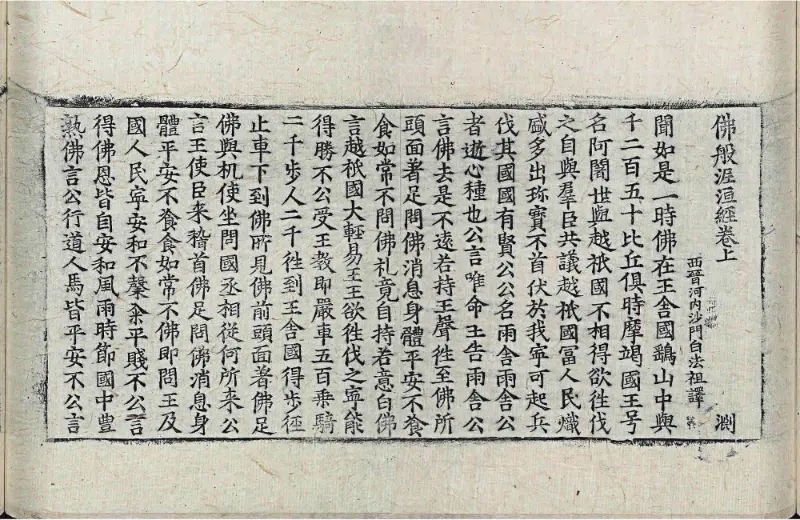 佛般泥洹經卷上
渕
西晉河內沙門白法祖譯
聞如是一時佛在王舍國鷂山中與
千二百五十比丘俱時摩竭國王号
名阿闍世與越祇國不相得欲徃伐
之自與羣臣共議越祇國富人民熾
盛多出珎寶不首伏於我寧可起兵
伐其國國有賢公公名雨舍雨舍公
者逝心種也公言唯命王告雨舍公
言佛去是不遠若持王聲徃至佛所
頭面著足問佛消息身體平安不飡
食如常不問佛礼竟自持若意白佛
言越祇國大輕易王王欲徃伐之寧能
得勝不公受王教即嚴車五百乗騎
二千步人二千徃到王舍國得步徑
止車下到佛所見佛前頭面著佛足
佛與机使坐問國丞相從何所来公
言王使臣来稽首佛足問佛消息身
體平安不飡食如常不佛即問王及
國人民寧安和不穀籴平賤不公言
得佛恩皆自安和風雨時節國中豊
熟佛言公行道人馬皆平安不公言